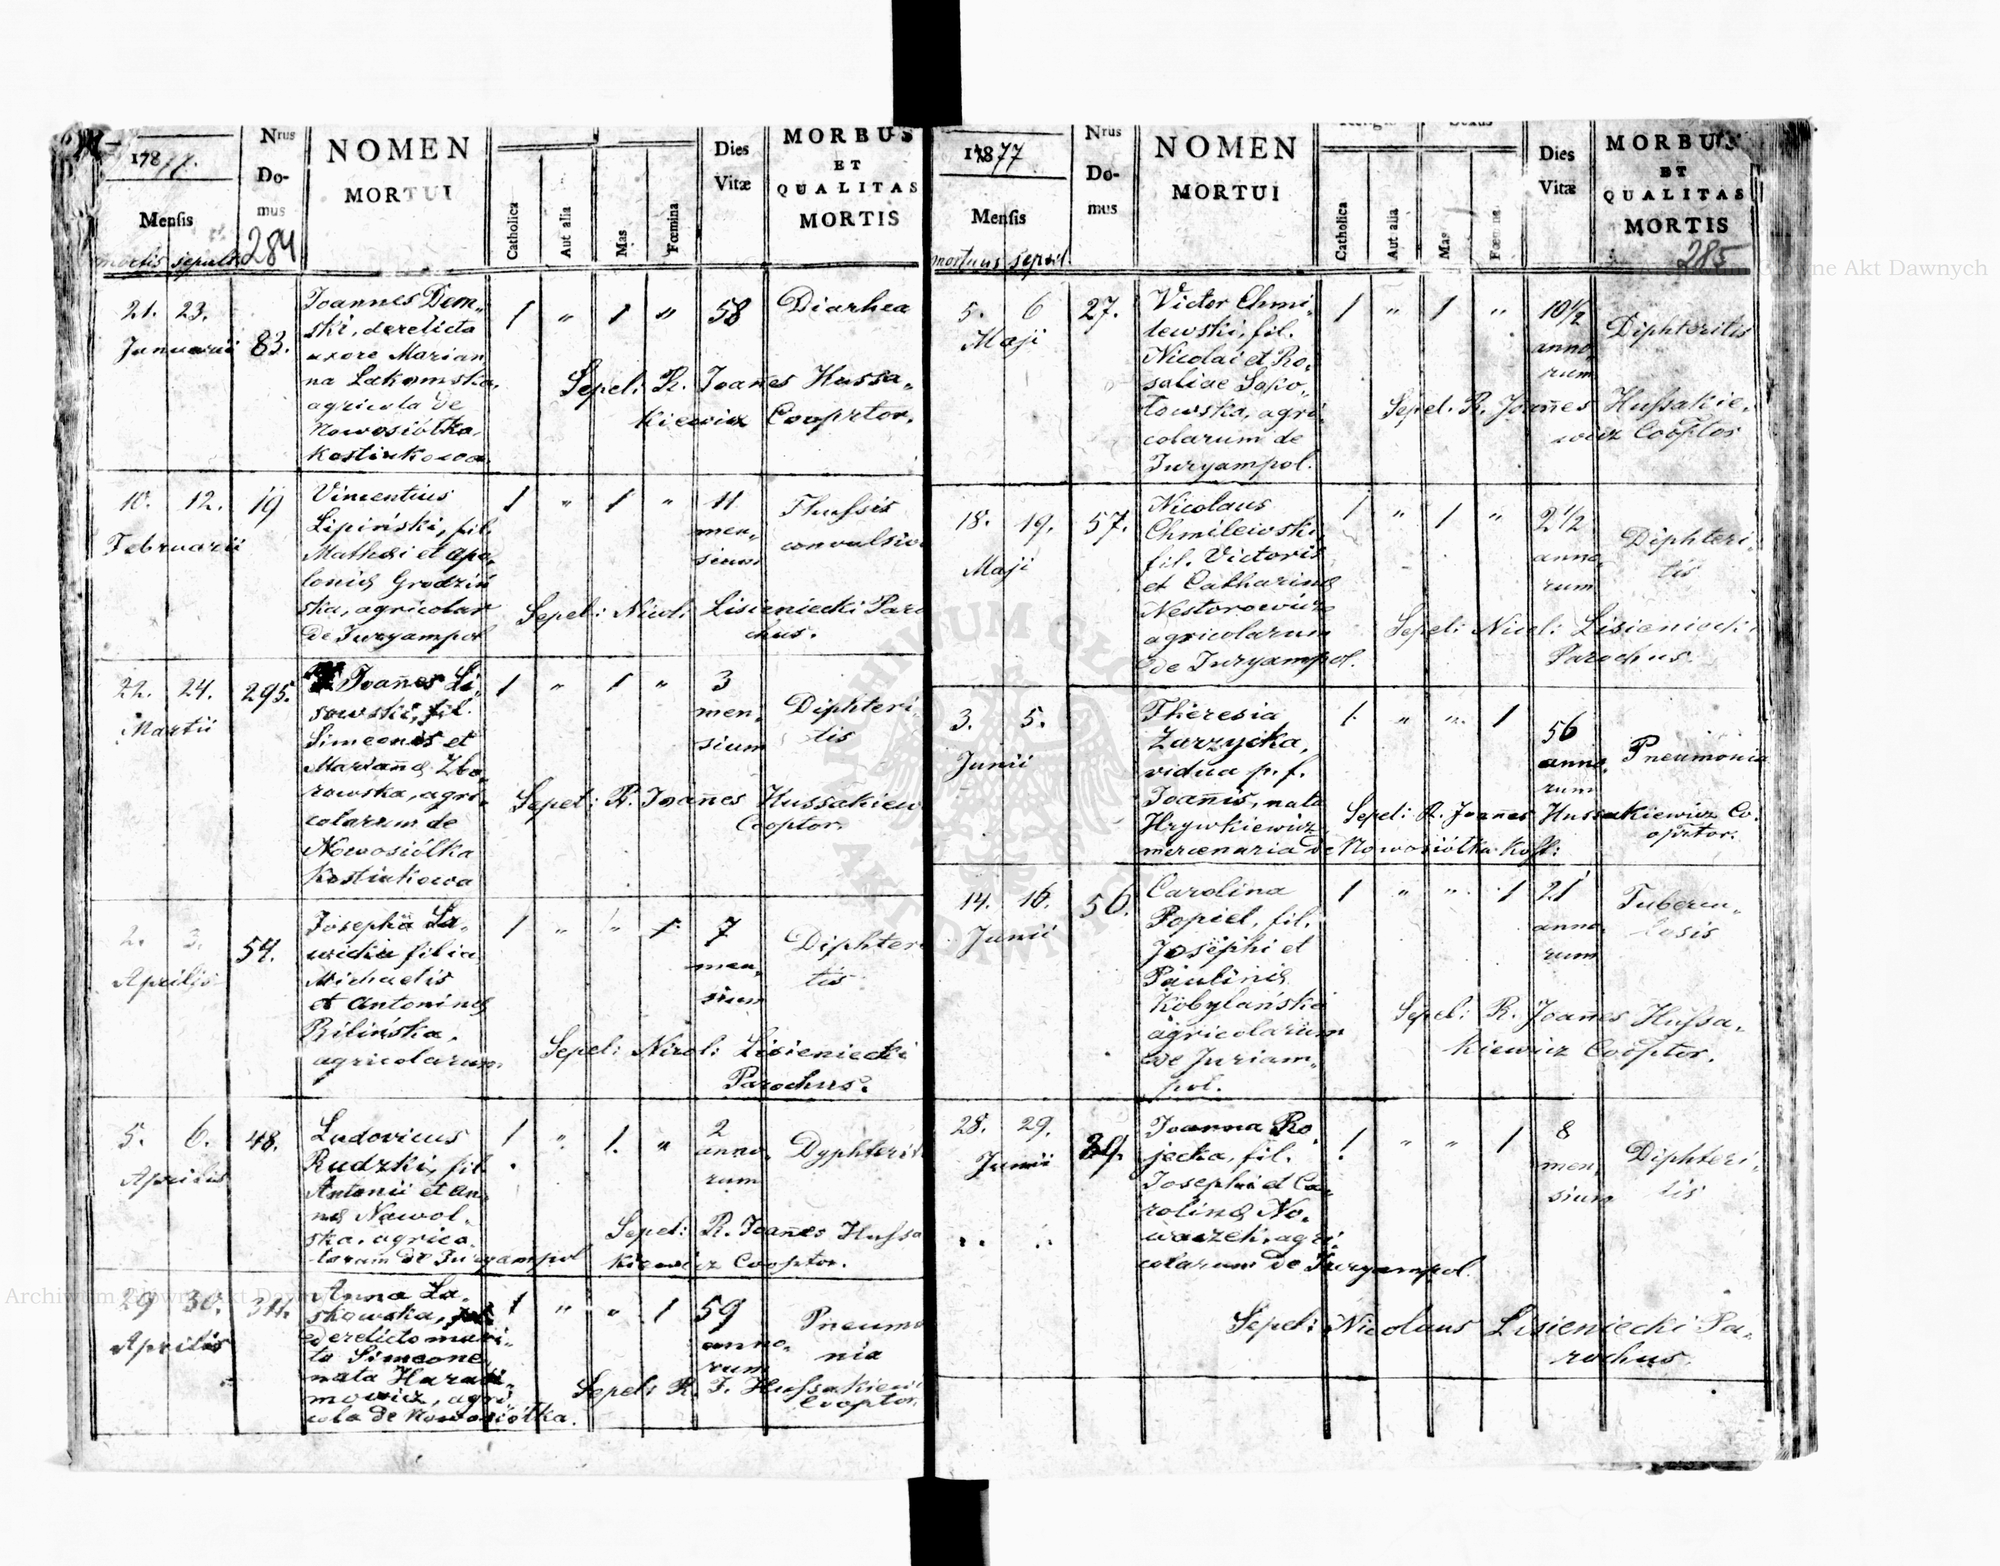 1877.
Nrus
Do-
mus
284
NOMEN
MORTUI
Catholica
Aut alia
Mas
Fœmina
Dies
Vitæ
MORBUS
ET
QUALITAS
MORTIS
Menſis
mortis sepult
21. 23.
Januarii
83.
Joannes Dem„
ski, derelicta
uxore Marian
na Lakomska,
agricola de
Nowosiółka
Kostiukowa
1 „ 1 „
58
Diarhea
Sepel: R. Joañes Hussa„
kiewicz Cooprtor.
10. 12.
Februarii
19
Vincentius
Lipiński, fil.
Mathei et Apo„
loniæ Grodziń
ska, agricolar
de Juryampol
1 „ 1 „
11
men„
sium
Thuſsis
convulsiv
Sepel: Nicol: Lisieniecki Paro
chus.
22. 24.
Martii
295.
Joañes Li„
sowski, fil.
Simeonis et
Mariañæ Zbo„
rowska, agri„
colarum de
Nowosiółka
Kostiukowa
1 „ 1 „
3
men„
sium
Diphteri„
tis
Sepel: R. Joañes Hussakiew
Cooptor.
2. 3.
Aprilis
54.
Josepha La„
wicka filia
Michaelis
et Antoninæ
Bilińska,
agricolarum.
1 „ „ 1
7
men„
sium
Diphter
tis
Sepel: Nicol: Lisieniecki
Parochus.
5. 6.
Aprilis
48.
Ludovicus
Rudzki, fil.
Antonii et An„
næ Nawol„
ska, agrico„
larum de Juryampol
1 „ 1. „
2
anno„
rum
Dyphterit
Sepel: R. Joañes Huſsa
kiewicz Cooptor.
29 30.
Aprilis
311.
Anna La„
skowska,
derelicto mari„
to Simeone,
nata Harasi„
mowicz, agri„
cola de Nowosiółka.
1 „ „ 1
59
anno„
rum
Pneumo
nia
Sepel: R. J. Huſsakiewi
Cooptor
1877
Nrus
Do-
mus
NOMEN
MORTUI
Catholica
Aut alia
Mas
Fœmina
Dies
Vitæ
MORBUS
ET
QUALITAS
MORTIS
285
Menſis
mortuus sepul.
5. 6
Maji
27.
Victor Chmi„
lewski, fil.
Nicolai et Ro„
saliae Sopo„
towska, agri„
colarum de
Juryampol.
1 „ 1 „
10½
anno„
rum
Diphteritis
Sepel. R. Joañes Huſsakie„
wicz Cooptor
18. 19.
Maji
57.
Nicolaus
Chmilewski,
fil. Victoris
et Catharinæ
Nestorowicz
agricolarum
de Juryampol.
1 „ 1 „
2½
anno„
rum
Diphteri„
tis
Sepel: Nicol: Lisieniecki
Parochus.
3. 5.
Junii
Theresia
Zarzycka,
vidua p. f.
Joañis, nata
Hrywkiewicz
mercenaria de Nowosiółka Koſt:
1. „ „ 1
56
anno„
rum
Pneumonia
Sepel: R. Joañes Hussakiewicz Co„
optor.
14. 16.
Junii
56.
Carolina
Popiel, fil.
Josephi et
Paulinæ
Kobylańska
agricolarum
de Juriam„
pol.
1 „ „ 1
21
anno„
rum
Tubercu„
losis
Sepel: R. Joañes Huſsa„
kiewicz Cooptor.
28. 29.
Junii
29.
Joanna Ro„
jecka, fil.
Josephi et Ca„
rolinæ No„
waczek, agri„
colarum de Juryampol.
1 „ „ 1
8
men„
sium
Diphteri„
tis
Sepel: Nicolaus Lisieniecki Pa„
rochus.
ARCHIWUM GŁÓWNE AKT DAWNYCH
Archiwum Główne Akt Dawnych